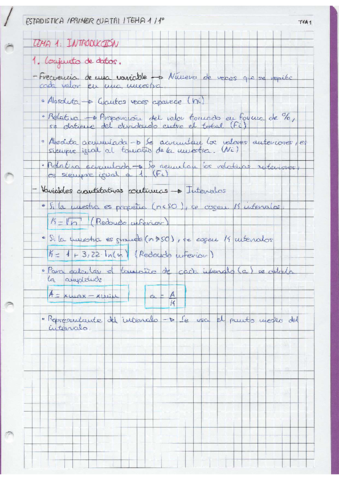 ESTADÍSTICA / PRIMER CUATRI / TEMA 1 / 1º
TEMA 1. INTRODUCCIÓN
1. Conjunto de datos.
- Frecuencia de una variable → Número de veces que se repite
cada valor en una muestra
• Absoluta → Cuantas veces aparece (ni)
• Relativa → Proporción del valor tomado en forma de %,
se obtiene del dividendo entre el total (Fi)
• Absoluta acumulada → Se acumulan los valores anteriores; es
siempre igual al tamaño de la muestra. (Ni)
• Relativa acumulada → Se acumulan las relativas anteriores;
es siempre igual a 1. (Fi)
- Variables cuantitativas continuas → Intervalos
• Si la muestra es pequeña (n<50), se cogen K intervalos
K = √n (Redondeo inferior)
• Si la muestra es grande (n>50), se cogen K intervalos
K = 1 + 3,22 ln(n) (Redondeo inferior)
• Para calcular el tamaño de cada intervalo (a), se calcula
la amplitud
A = xmax - xmin
a = A/K
• Representante del intervalo → Se usa el punto medio del
intervalo